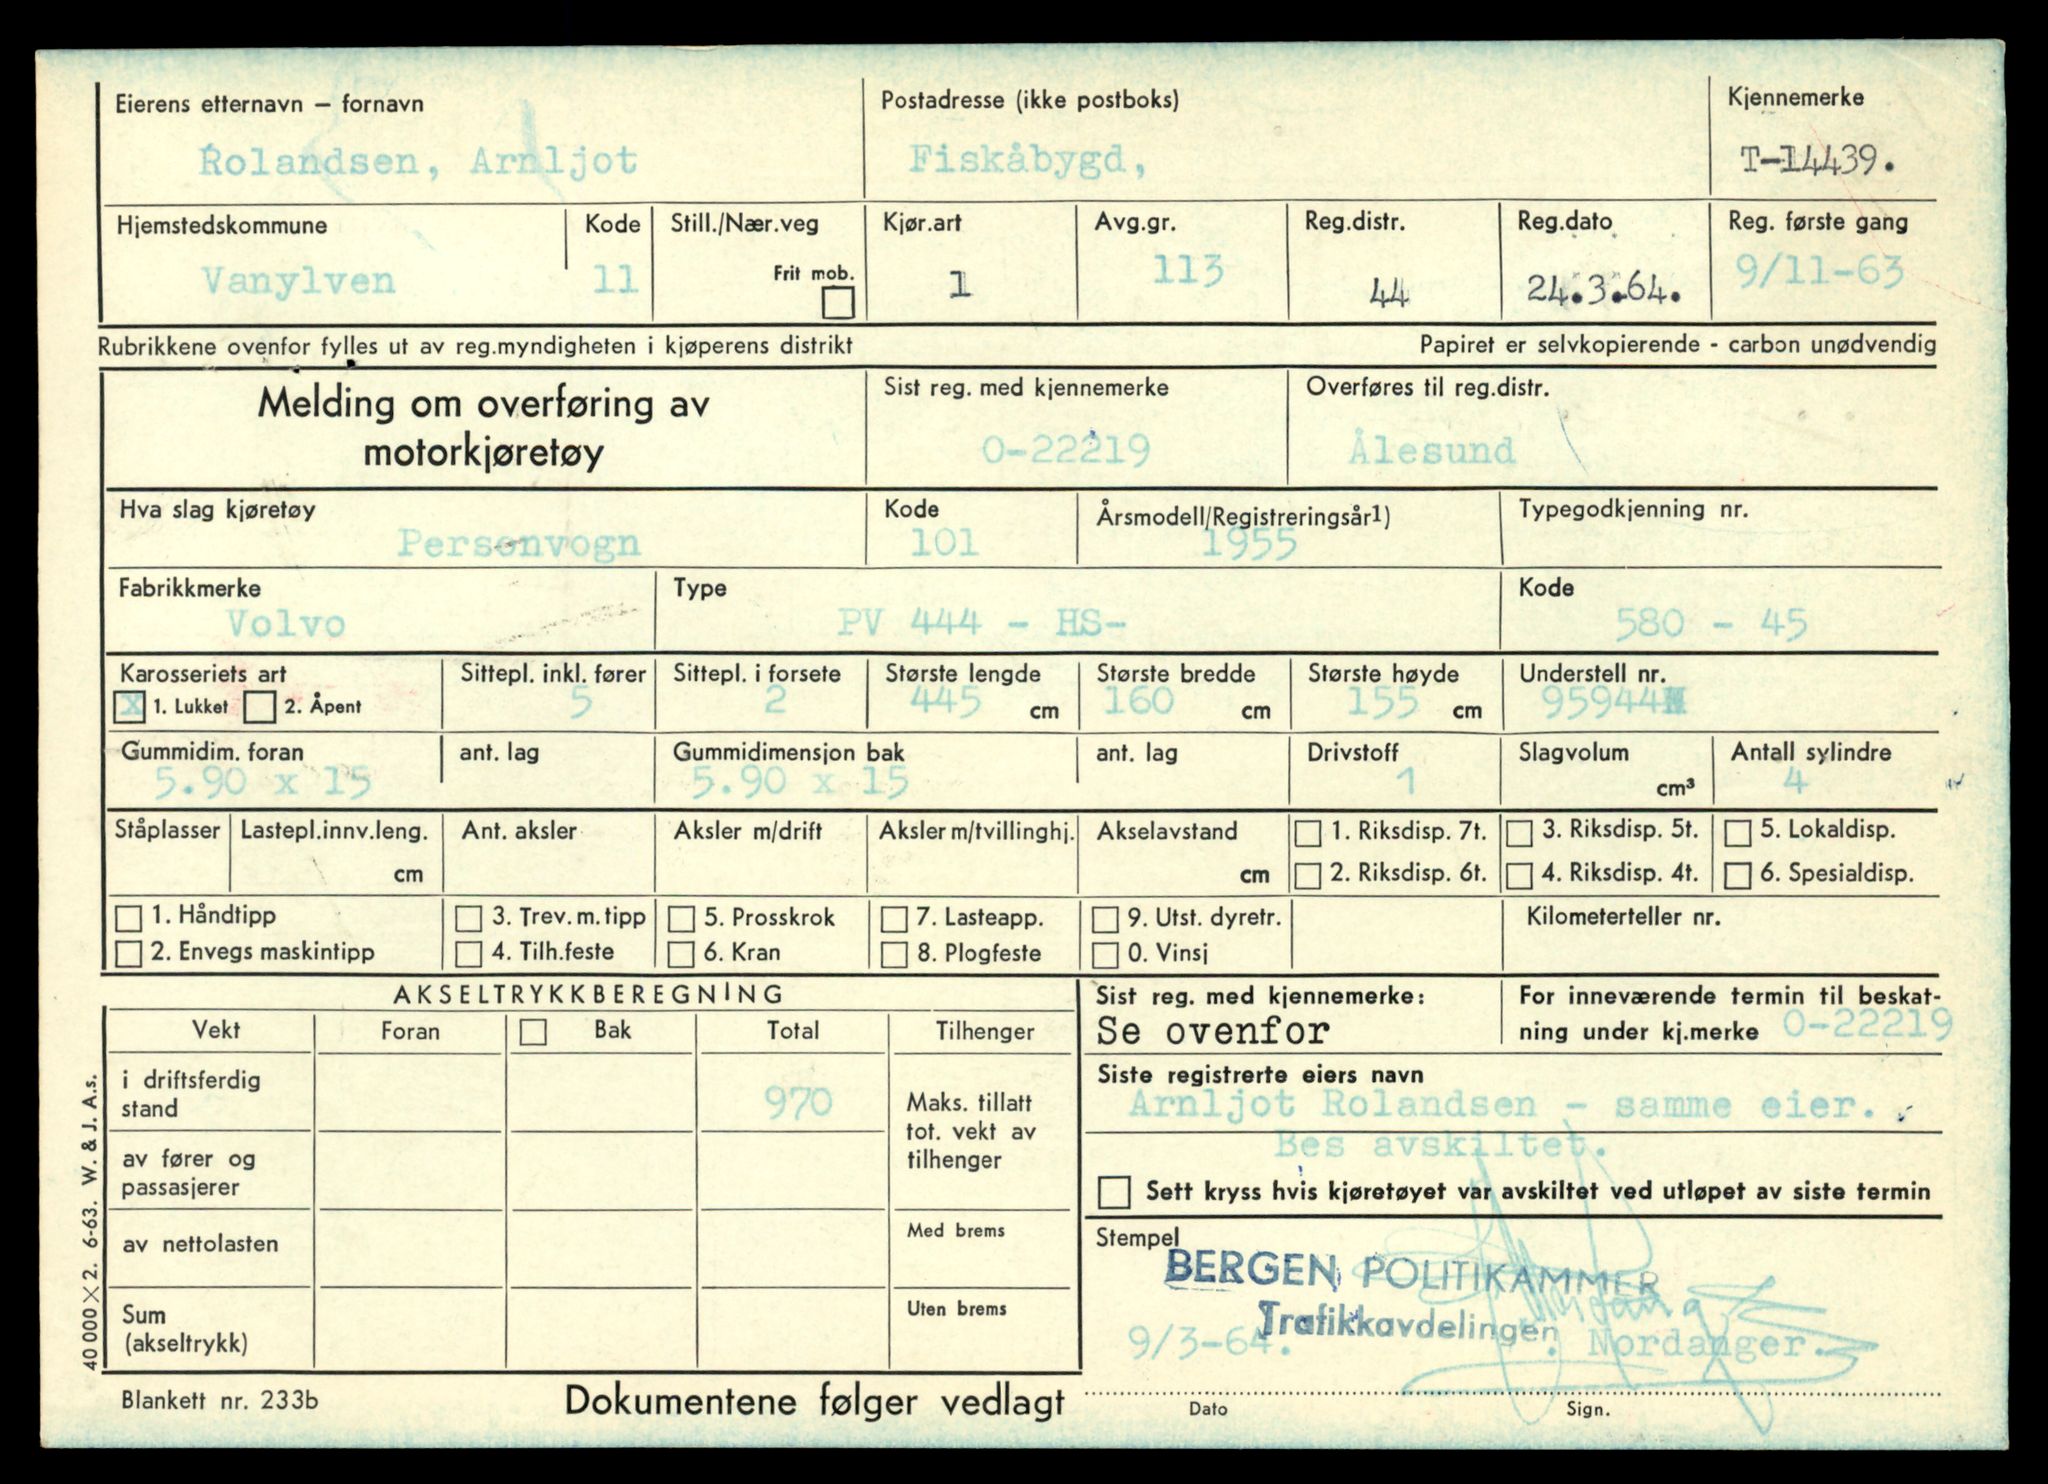 Eierens etternavn – fornavn
Postadresse (ikke postboks)
Kjennemerke
Rolandsen, Arnljot
Fiskåbygd,
T-14439.
Hjemstedskommune
Kode
Still./Nær.veg
Kjør.art
Avg.gr.
Reg.distr.
Reg.dato
Reg. første gang
Vanylven
11
Frit mob.
1
113
44
24.3.64.
9/11-63
Rubrikkene ovenfor fylles ut av reg.myndigheten i kjøperens distrikt
Papiret er selvkopierende - carbon unødvendig
Melding om overføring av
motorkjøretøy
Sist reg. med kjennemerke
O-22219
Overføres til reg.distr.
Ålesund
Hva slag kjøretøy
Personvogn
Kode
101
Årsmodell/Registreringsår1)
1955
Typegodkjenning nr.
Fabrikkmerke
Volvo
Type
PV 444 - HS-
Kode
580 - 45
Karosseriets art
Sittepl. inkl. fører
Sittepl. i forsete
Største lengde
Største bredde
Største høyde
Understell nr.
X 1. Lukket
2. Åpent
5
2
445 cm
160 cm
155 cm
95944
Gummidim. foran
ant. lag
Gummidimensjon bak
ant. lag
Drivstoff
Slagvolum
Antall sylindre
5.90 x 15
5.90 x 15
1
cm³
4
Ståplasser
Lastepl.innv.leng.
Ant. aksler
Aksler m/drift
Aksler m/tvillinghj.
Akselavstand
1. Riksdisp. 7t.
3. Riksdisp. 5t.
5. Lokaldisp.
cm
cm
2. Riksdisp. 6t.
4. Riksdisp. 4t.
6. Spesialdisp.
1. Håndtipp
3. Trev. m. tipp
5. Prosskrok
7. Lasteapp.
9. Utst. dyretr.
Kilometerteller nr.
2. Envegs maskintipp
4. Tilh.feste
6. Kran
8. Plogfeste
0. Vinsj
AKSELTRYKKBEREGNING
Vekt
Foran
Bak
Total
Tilhenger
i driftsferdig
stand
970
Maks. tillatt
tot. vekt av
tilhenger
av fører og
passasjerer
av nettolasten
Med brems
Sum
(akseltrykk)
Uten brems
Sist reg. med kjennemerke:
Se ovenfor
For inneværende termin til beskat-
ning under kj.merke O-22219
Siste registrerte eiers navn
Arnljot Rolandsen - samme eier.
Bes avskiltet.
Sett kryss hvis kjøretøyet var avskiltet ved utløpet av siste termin
Stempel
BERGEN POLITIKAMMER
Trafikkavdelingen
9/3-64.
Nordanger.
Dato
Sign.
Blankett nr. 233b
Dokumentene følger vedlagt
40 000 X 2. 6-63. W. & J. A.s.